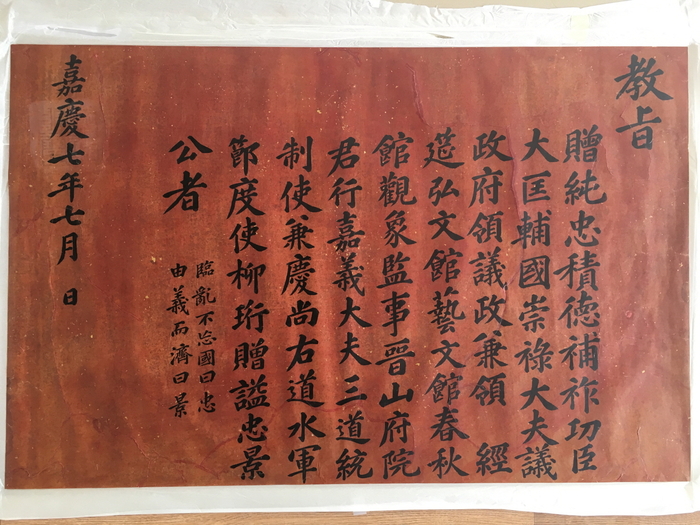 教旨
贈純忠積德補祚功臣
大匡輔國崇祿大夫議
政府領議政兼領 經
筵弘文館藝文館春秋
館觀象監事晉山府院
君行嘉義大夫三道統
制使兼慶尚右道水軍
節度使柳珩贈諡忠景
公者
臨亂不忘國曰忠
由義而濟曰景
嘉慶七年七月 日